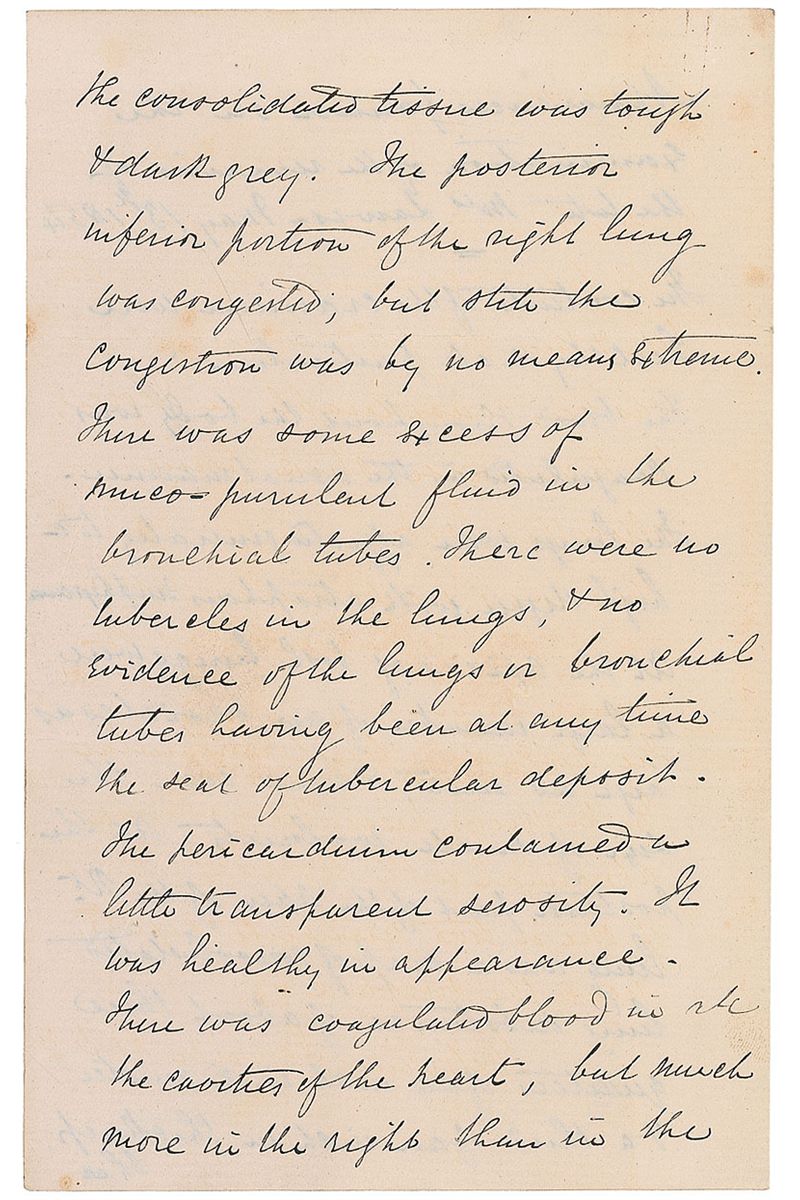 the consolidated tissue was tough
& dark grey. The posterior
inferior portion of the right lung
was congested, but still the
congestion was by no means extreme.
There was some excess of
muco-purulent fluid in the
bronchial tubes. There were no
tubercles in the lungs, & no
evidence of the lungs or bronchial
tubes having been at any time
the seat of tubercular deposit.
The pericardium contained a
little transparent serosity. It
was healthy in appearance.
There was coagulated blood in
the cavities of the heart, but much
more in the right than in the